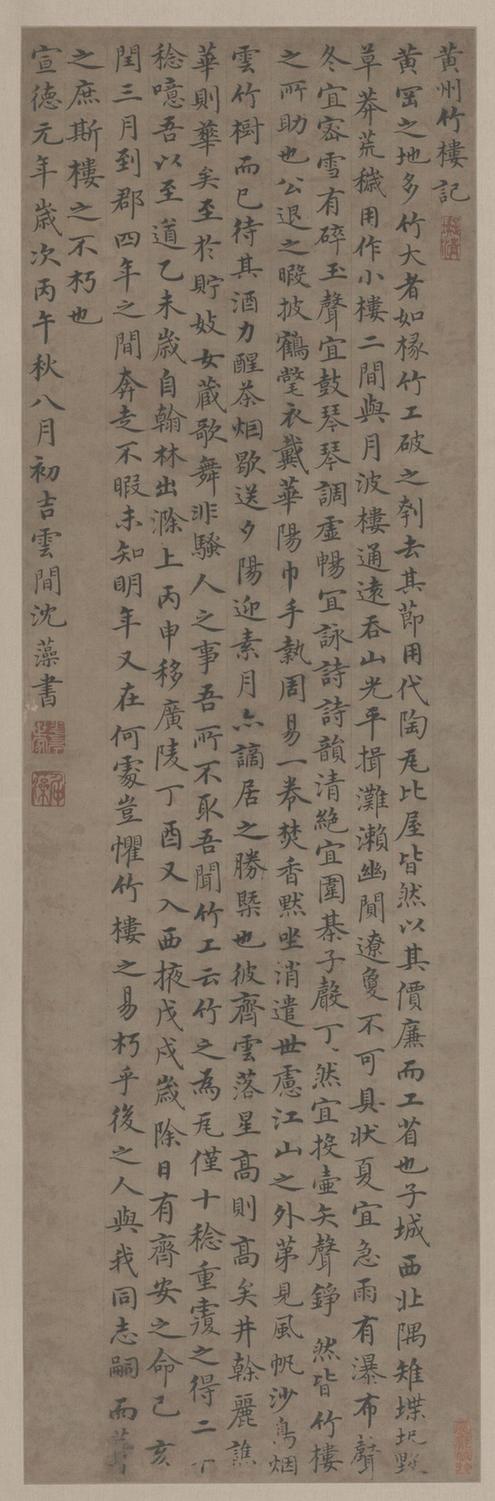 黄州竹樓記
黄罡之地多竹大者如椽竹工破之刳去其節用代陶瓦比屋皆然以其價廉而工省也子城西北隅雉堞圮毀
草莽荒穢用作小樓二間與月波樓通遠吞山光平揖灘瀨幽闃遼敻不可具狀夏宜急雨有瀑布聲
冬宜密雪有碎玉聲宜鼓琴琴調虛暢宜詠詩詩韻清絶宜圍棊子聲丁丶然宜投壺矢聲錚然皆竹樓
之所助也公退之暇披鶴氅衣戴華陽巾手執周易一卷焚香默坐消遣世慮江山之外苐見風帆沙鳥烟
雲竹樹而已待其酒力醒茶烟歇送夕陽迎素月亦謫居之勝槩也彼齊雲落星髙則髙矣井榦麗譙
華則華矣至於貯妓女蔵歌舞非騷人之事吾所不取吾聞竹工云竹之為瓦僅十稔重覆之得二十
稔噫吾以至道乙未歲自翰林出滁上丙申移廣陵丁酉又入西掖戊戌歲除日有齊安之命己亥
閏三月到郡四年之間奔走不暇未知明年又在何處豈懼竹樓之易朽乎後之人與我同志嗣而葺
之庶斯樓之不朽也
宣德元年歲次丙午秋八月初吉雲間沈藻書